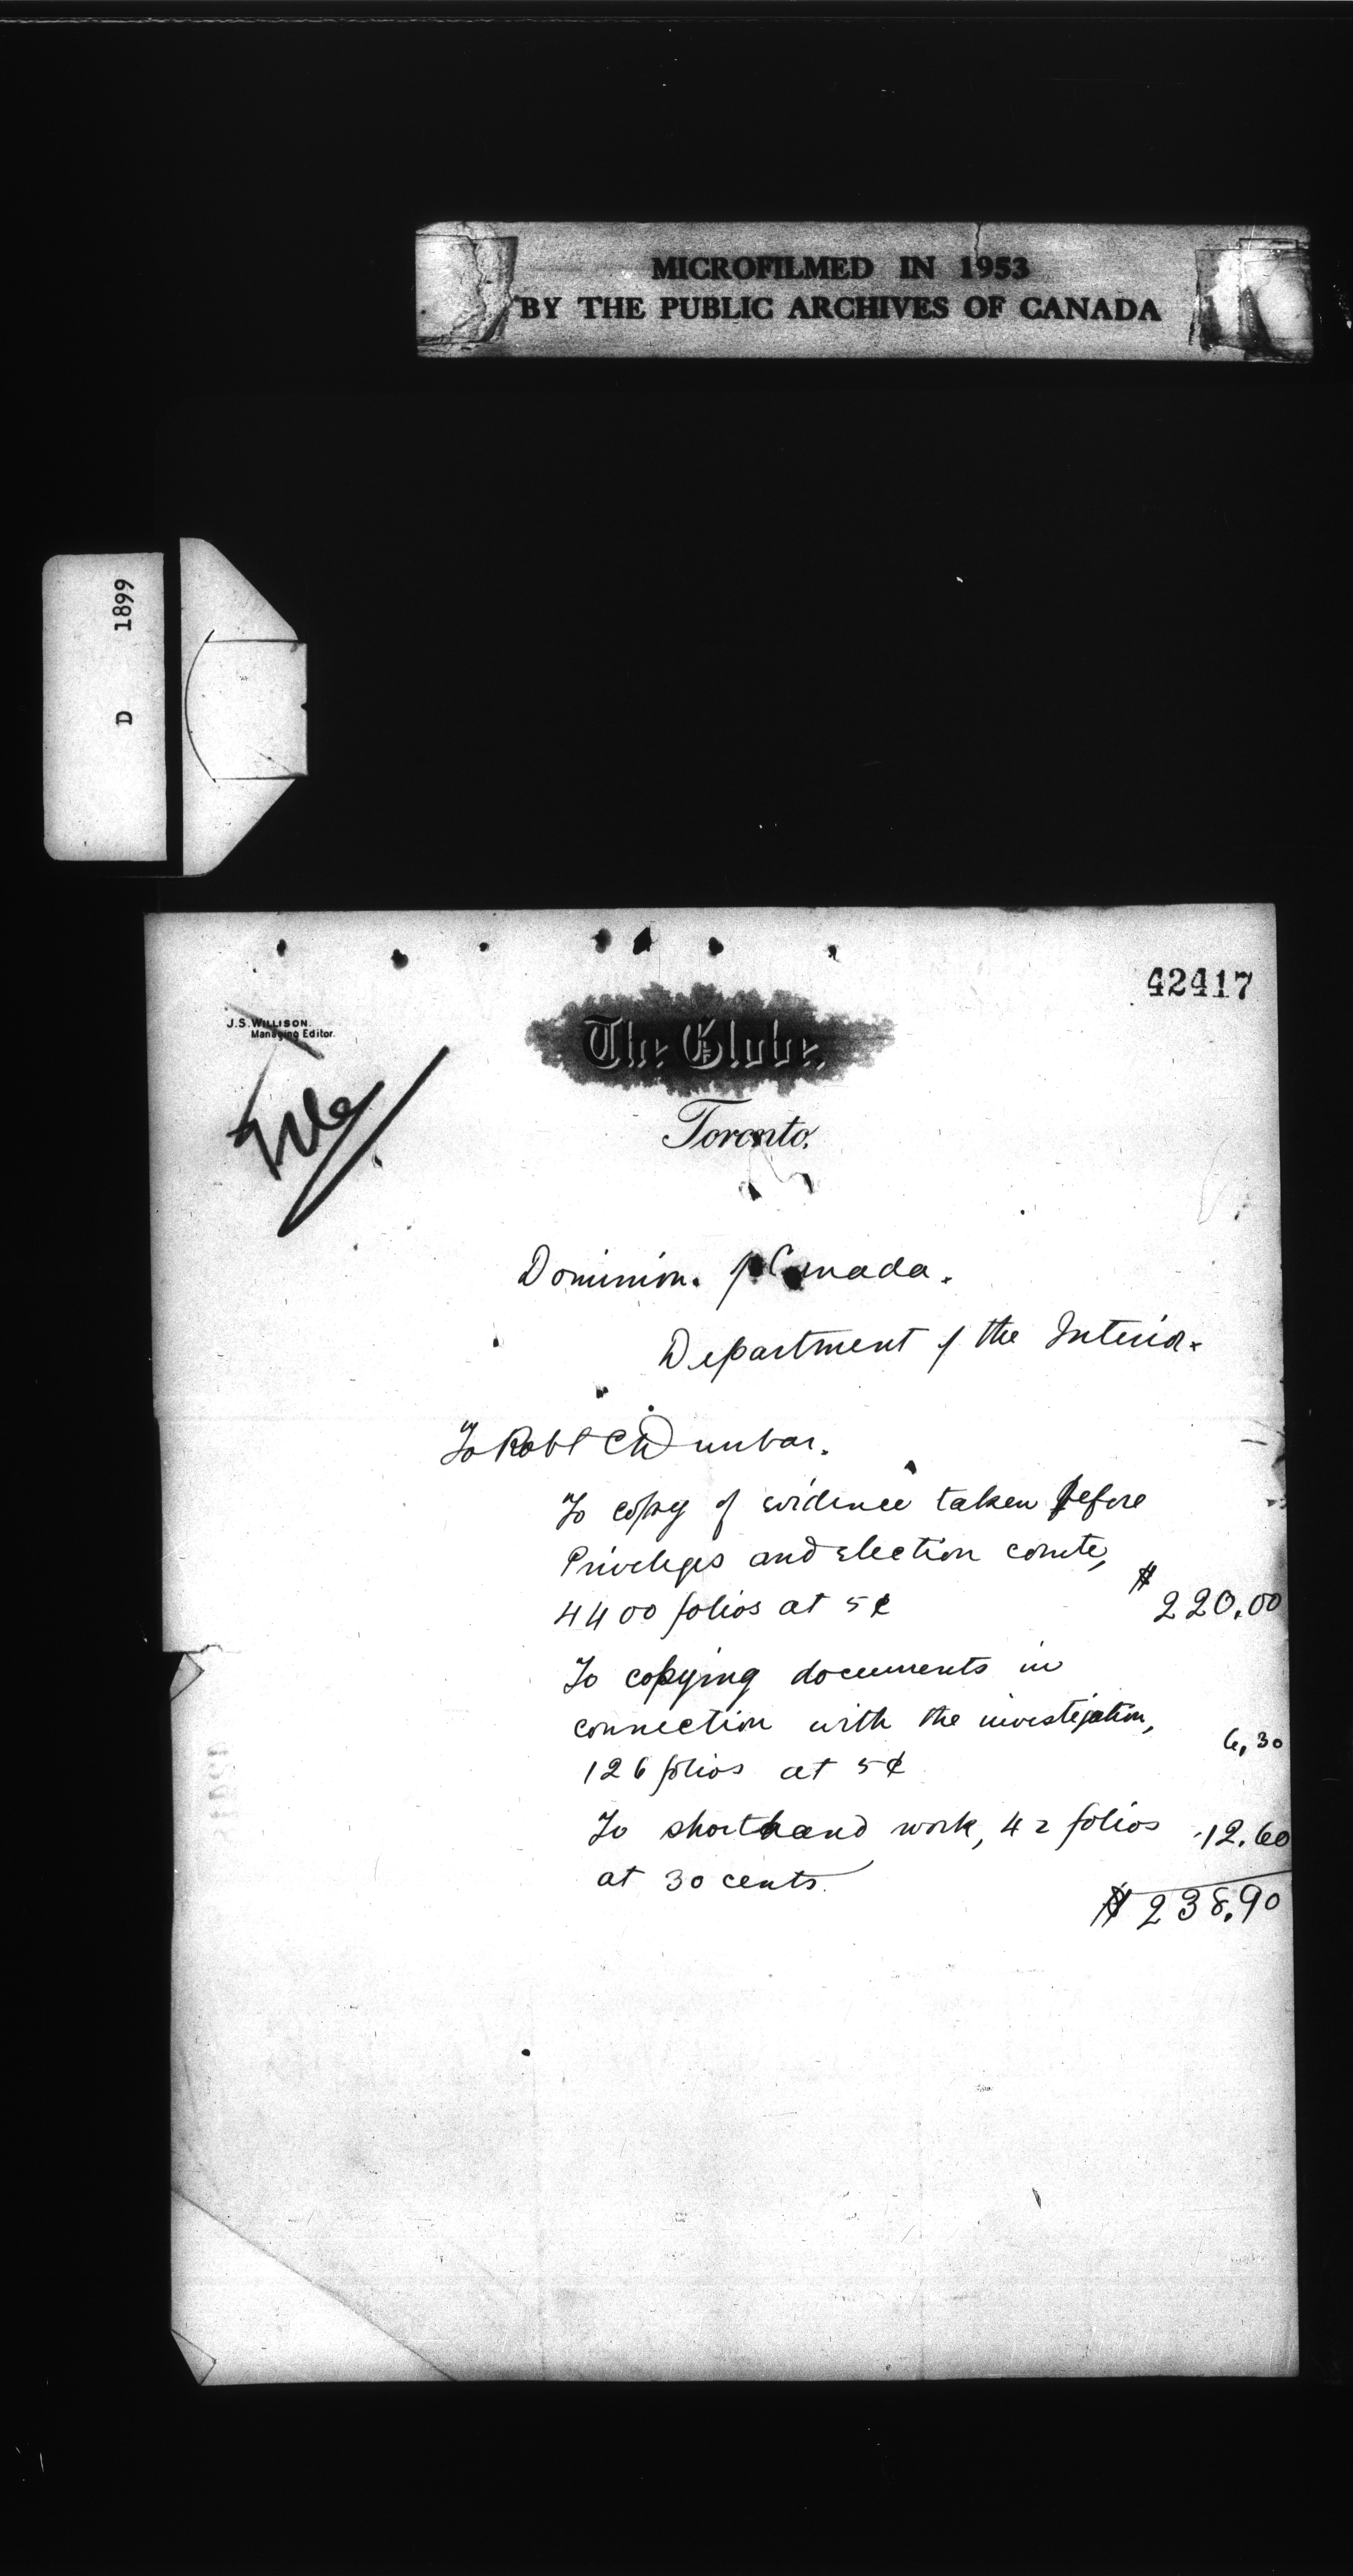 MICROFILMED IN 1953
BY THE PUBLIC ARCHIVES OF CANADA
D 1899
42417
J.S. WILLISON.
Managing Editor.
The Globe.
Toronto.
File
Dominion of Canada.
Department of the Interior.
To Robt C Dunbar.
To copy of evidence taken before
Privileges and Election comte,
4400 folios at 5¢ $220.00
To copying documents in
connection with the investigation,
126 folios at 5¢ 6.30
To shorthand work, 42 folios 12.60
at 30 cents.
$238.90